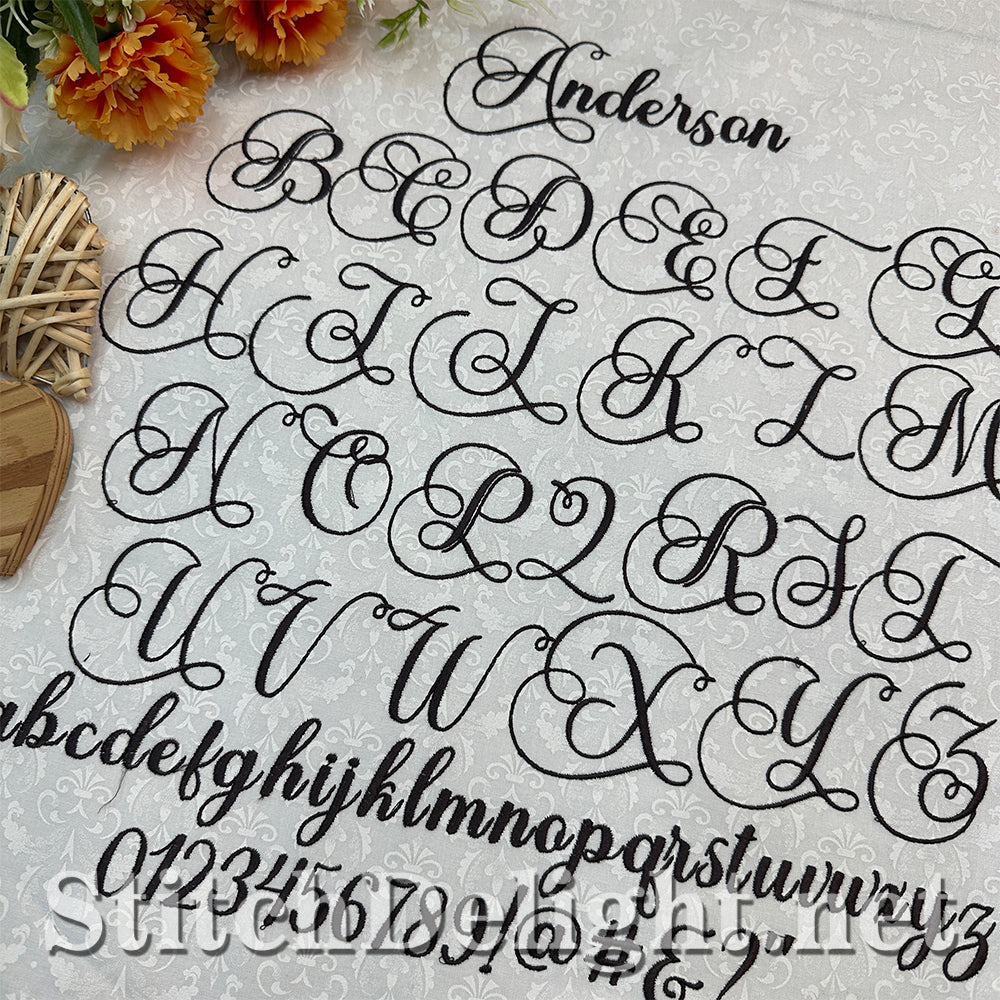 Anderson
B C D E F G
H I J K L M
N O P Q R S T
U V W X Y Z
abcdefghijklmnopqrstuvwxyz
0123456789!@#&?"
StitchDelight.net